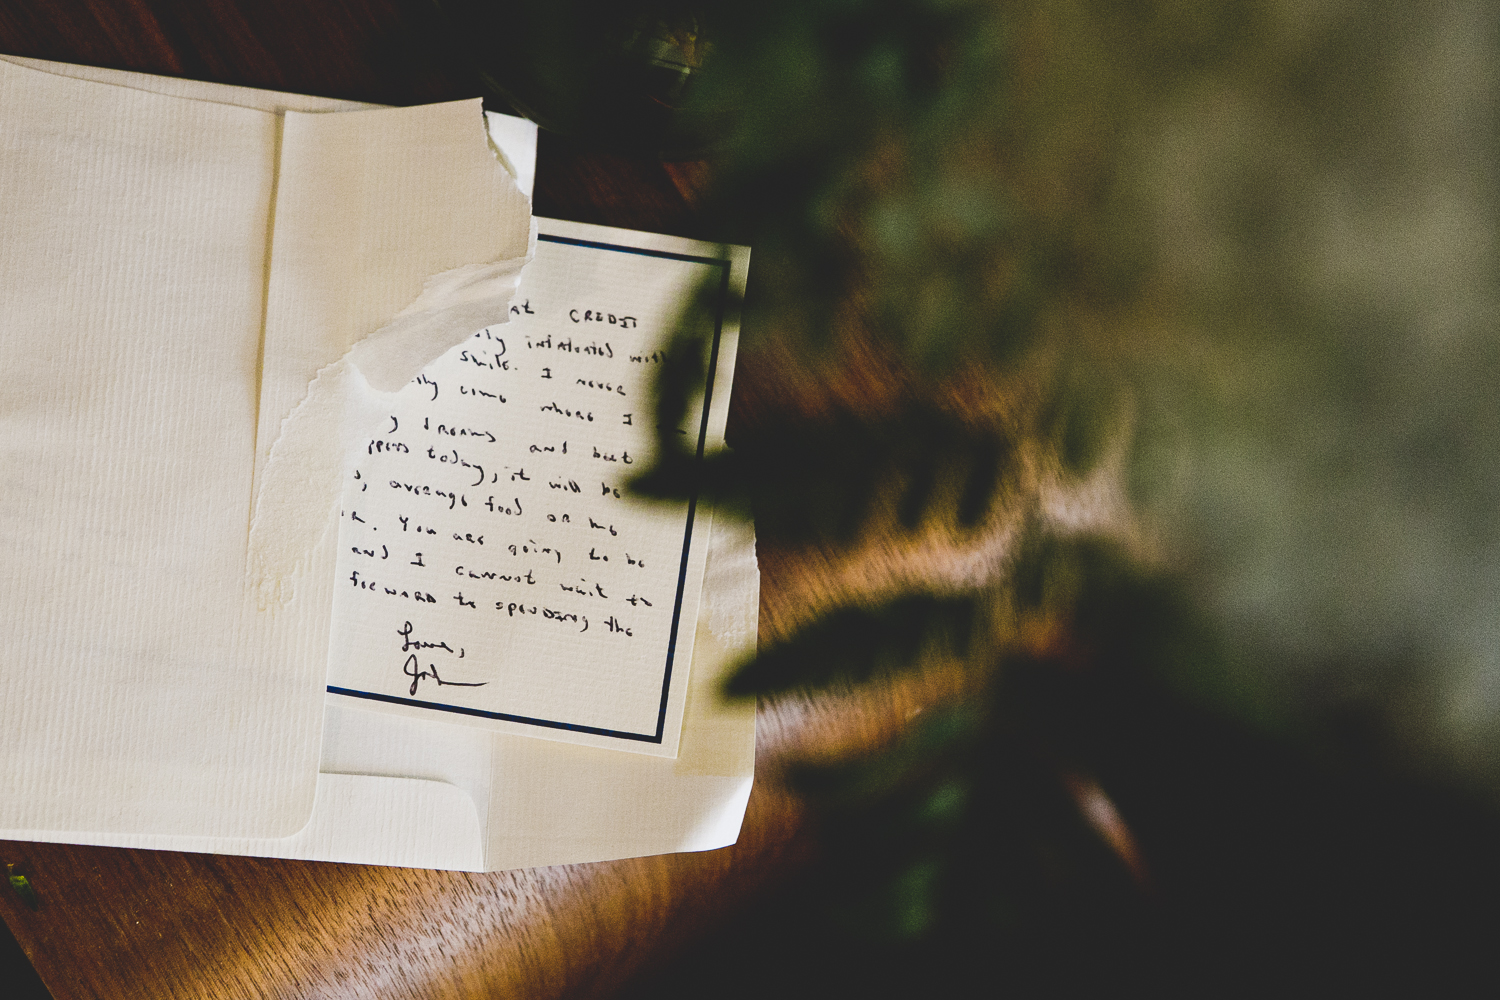 AT CREDIT
ly infatuated with
smile. I never
ily come where I
y dreams and but
ppens today, it will be
s, average food or no
R. You are going to be
and I cannot wait to
forward to spending the
Love,
John